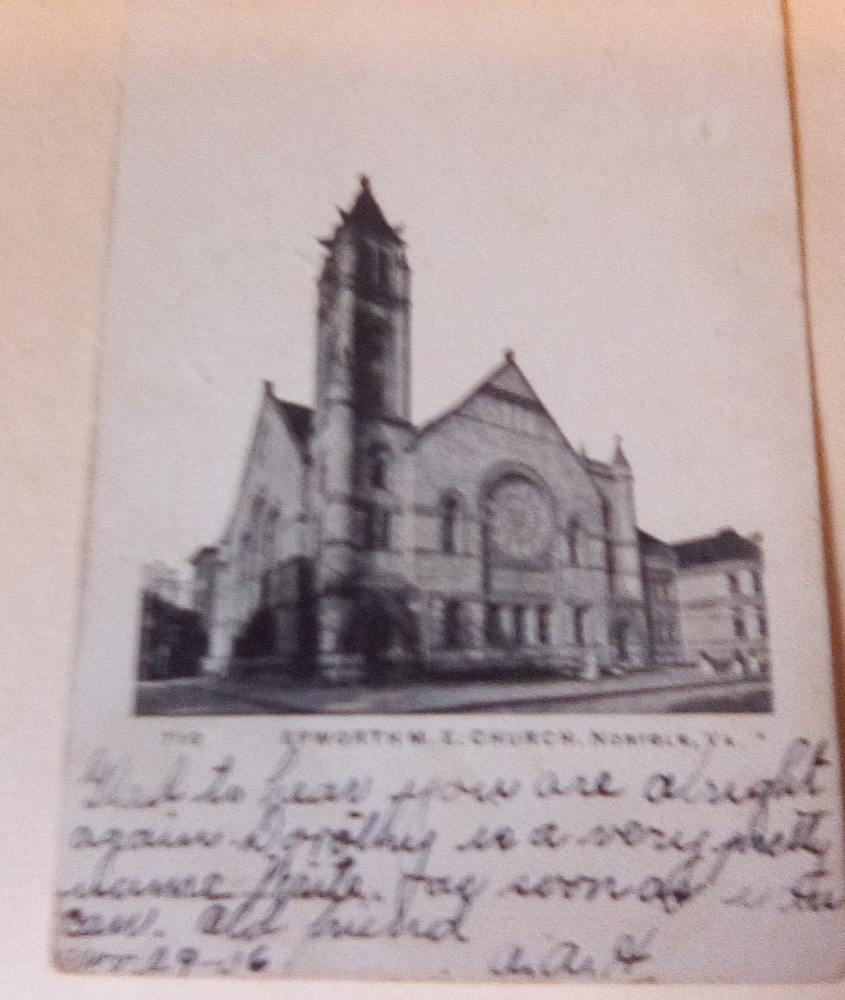 EPWORTH M. E. CHURCH, NORFOLK, VA.
Glad to hear you are alright
again Dorothy is a very pretty
name Write. as soon as you
can. Old friend
29-06
A. A. H